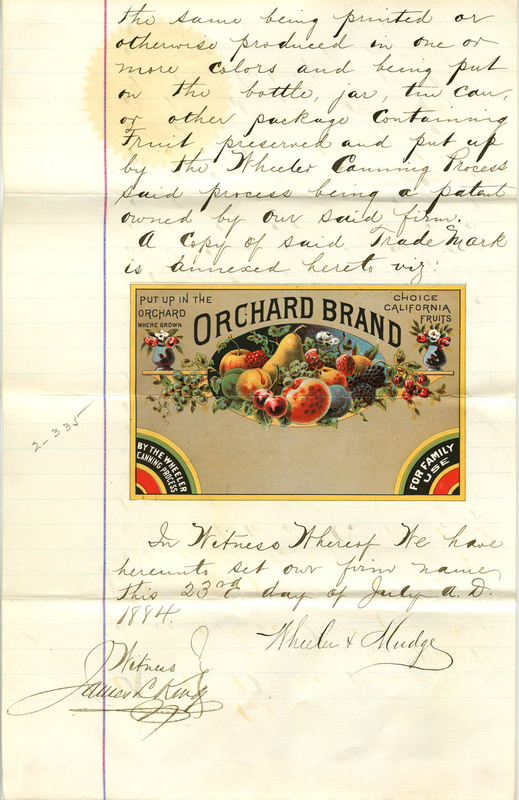 the same being printed or
otherwise produced in one or
more colors and being put
on the bottle, jar, tin can,
or other package containing
Fruit preserved and put up
by the Wheeler Canning Process
said process being a patent
owned by our said firm.
A Copy of said Trade Mark
is annexed hereto viz:
PUT UP IN THE
ORCHARD
WHERE GROWN
ORCHARD BRAND
CHOICE
CALIFORNIA
FRUITS
BY THE WHEELER
CANNING PROCESS
FOR FAMILY
USE
2-335
In Witness Whereof We have
hereunto set our firm name,
this 23rd day of July A.D.
1884.
Wheeler & Mudge
Witness
James L King